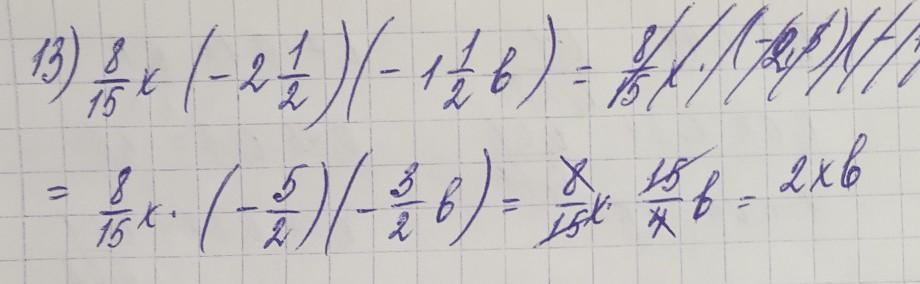 13) 8/15 x (- 2 1/2)(- 1 1/2 в) =
= 8/15 x · (- 5/2)(- 3/2 в) = 8/15 x · 15/4 в = 2xв